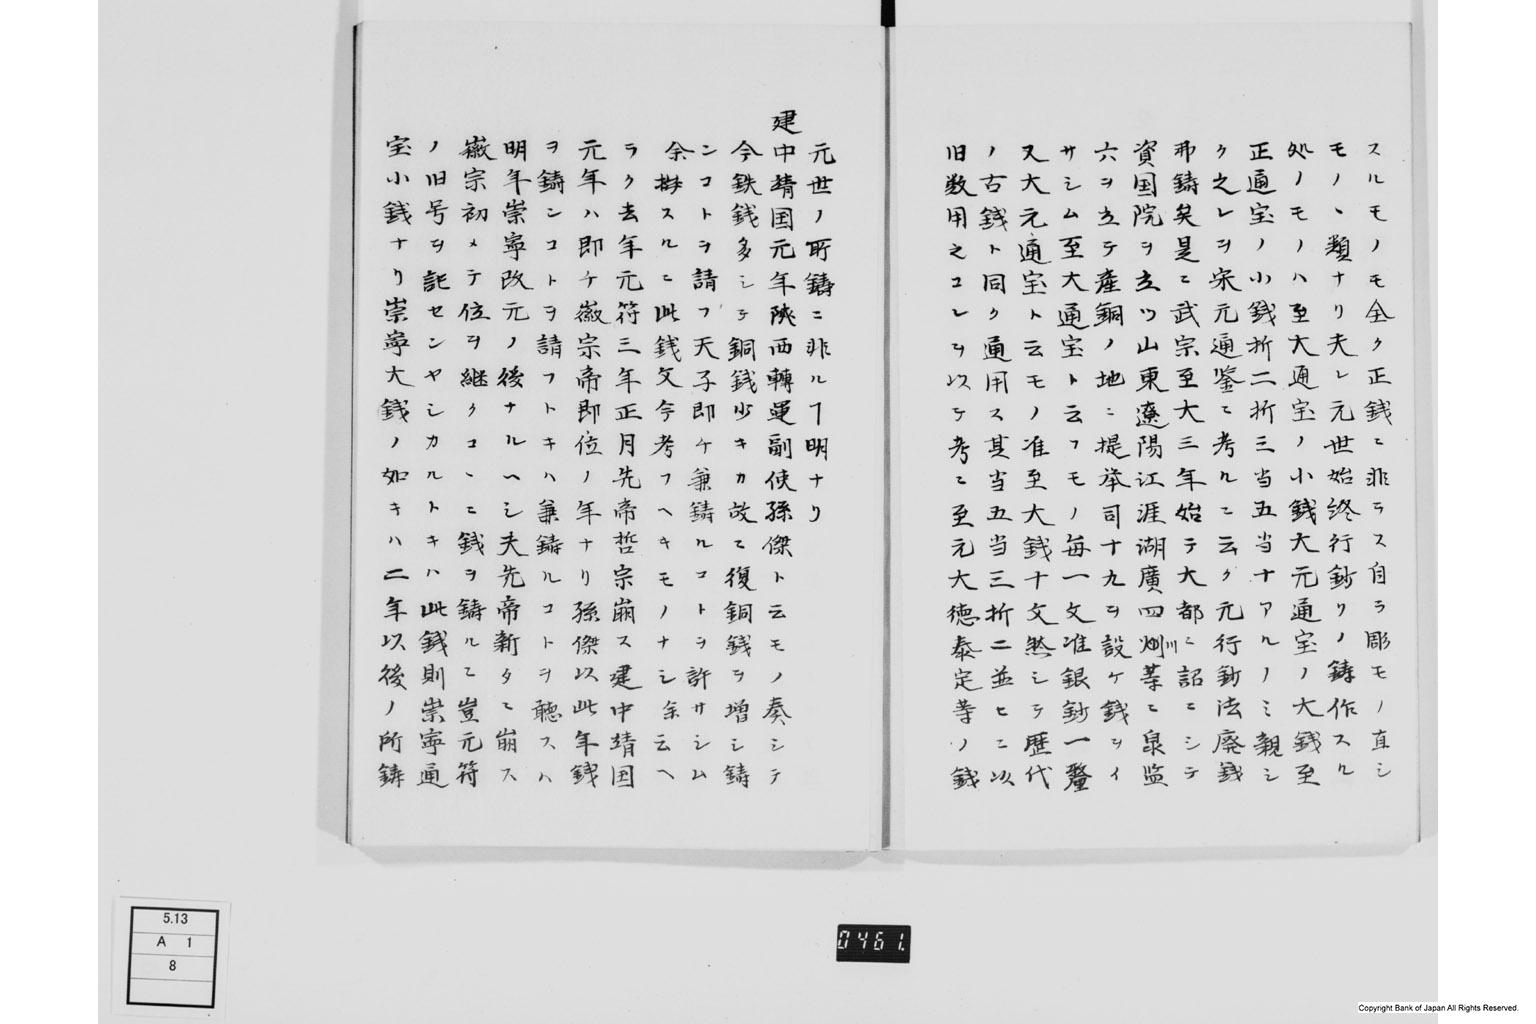 スルモノモ全ク正銭ニ非ラス自ラ彫モノ直シ
モノヽ類ナリ夫レ元世始終行鈔リノ鋳作スル
処ノモノハ至大通宝ノ小銭大元通宝ノ大銭至
正通宝ノ小銭折二折三当五当十アルノミ親シ
ク之レヲ宋元通鉴ニ考ルニ云ク元行鈔法廃銭
弗鋳矣是ニ武宗至大三年始テ大都ニ詔ニシテ
資国院ヲ立ツ山東遼陽江涯湖廣四川等ニ泉監
六ヲ立テ産銅ノ地ニ提举司十九ヲ設ケ銭ヲイ
サシム至大通宝ト云フモノ毎一文准銀鈔一釐
又大元通宝ト云モノ准至大銭十文然シテ歴代
ノ古銭ト同ク通用ス其当五当三折二並ヒニ以
旧数用之コレヲ以テ考ニ至元大徳泰定等ノ銭
元世ノ所鋳ニ非ルヿ明ナリ
建中靖国元年陝西轉運副使孫傑ト云モノ奏シテ
今鉄銭多シテ銅銭少キカ故ニ復銅銭ヲ増シ鋳
ンコトヲ請フ天子即ケ兼鋳ルコトヲ許サシム
余按スルニ此銭文今考フヘキモノナシ余云ヘ
ラク去年元符三年正月先帝哲宗崩ス建中靖国
元年ハ即チ徽宗帝即位ノ年ナリ孫傑以此年銭
ヲ鋳ンコトヲ請フトキハ兼鋳ルコトヲ聴スハ
明年崇寧改元ノ後ナルヘシ夫先帝新タニ崩ス
徽宗初メテ位ヲ継クコヽニ銭ヲ鋳ルニ豈元符
ノ旧号ヲ託センヤシカルトキハ此銭則崇寧通
宝小銭ナリ崇寧大銭ノ如キハ二年以後ノ所鋳
5.13
A 1
8
0461.
Copyright Bank of Japan All Rights Reserved.